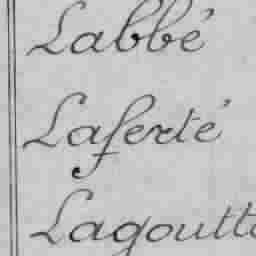 Labbé
Laferté
Lagoutte